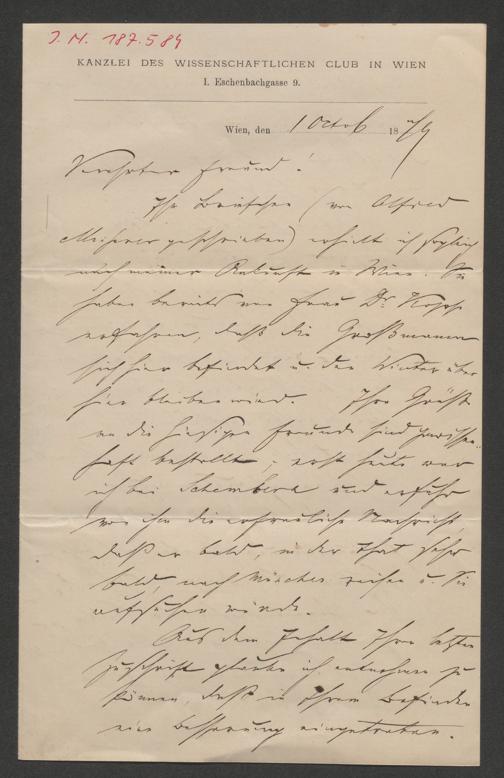 J. N. 187.584
KANZLEI DES WISSENSCHAFTLICHEN CLUB IN WIEN
I. Eschenbachgasse 9.
Wien, den 1 Octob 1879
Verehrter Freund!
Ihr Briefchen (von Alfred
Meissner geschrieben) erhielt ich sogleich
nach meiner Ankunft in Wien. Sie
haben bereits von Frau Dr.
erfahren, daß die Großmann
sich hier befindet u. den Winter über
hier bleiben wird. Ihre Grüße
an die hiesigen Freunde sind gewissen-
haft bestellt; erst heute war
ich bei Schembera und erfuhr
von ihm die erfreuliche Nachricht,
daß er bald, in der That sehr
bald, nach München reisen u. Sie
aufsuchen würde.
Aus dem Inhalt Ihrer letzten
Zuschrift glaube ich entnehmen zu
können, daß in Ihrem Befinden
eine Besserung eingetreten.